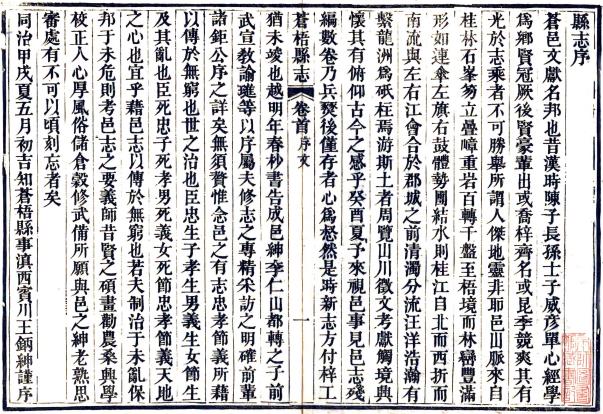 縣志序
蒼邑文獻名邦也昔漢時陳子長孫士子威彥單心經學
為鄉賢冠厥後賢豪輩出或喬梓齊名或昆季競爽其有
光於志乘者不可勝舉所謂人傑地靈非耶邑山脈來自
桂林石峯芴立疊嶂重岩百轉千盤至梧境而林巒豐滿
形如連傘左旗右鼓體勢團結水則桂江自北而西折而
南流與左右江會合於郡城之前清濁分流汪洋浩瀚有
繫龍洲為砥柱焉游斯土者周覽山川徵文考獻觸境興
懷其有俯仰古今之感乎癸酉夏予來視邑事見邑志殘
編數卷乃兵燹後僅存者心為惄然是時新志方付梓工
蒼梧縣志
卷首
序文
一
猶未竣也越明年春杪書告成邑紳李仁山都轉之子前
武宣教諭璀等以序屬夫修志之專精采訪之明確前輩
諸鉅公序之詳矣無須贅惟念邑之有志忠孝節義所藉
以傳於無窮也世之治也臣忠生子孝生男義生女節生
及其亂也臣死忠子死孝男死義女死節忠孝節義天地
之心也宜乎藉邑志以傳於無窮也若夫制治于未亂保
邦于未危則考邑志之要義師昔賢之碩畫勸農桑興學
校正人心厚風俗儲倉穀修武備所願與邑之紳老熟思
審處有不可以頃刻忘者矣
同治甲戌夏五月初吉知蒼梧縣事滇西賓川王錫紳謹序